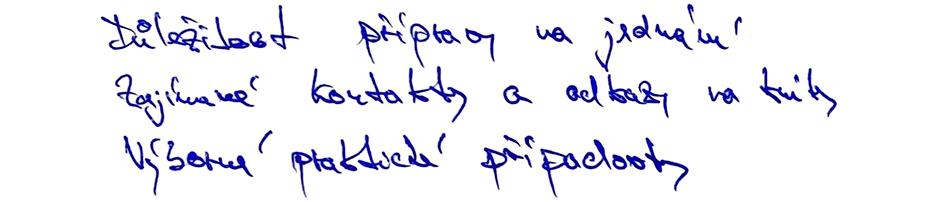 Důležitost přípravy na jednání
Zajímavé kontakty a odkazy na knihy
Výborné praktické případovky